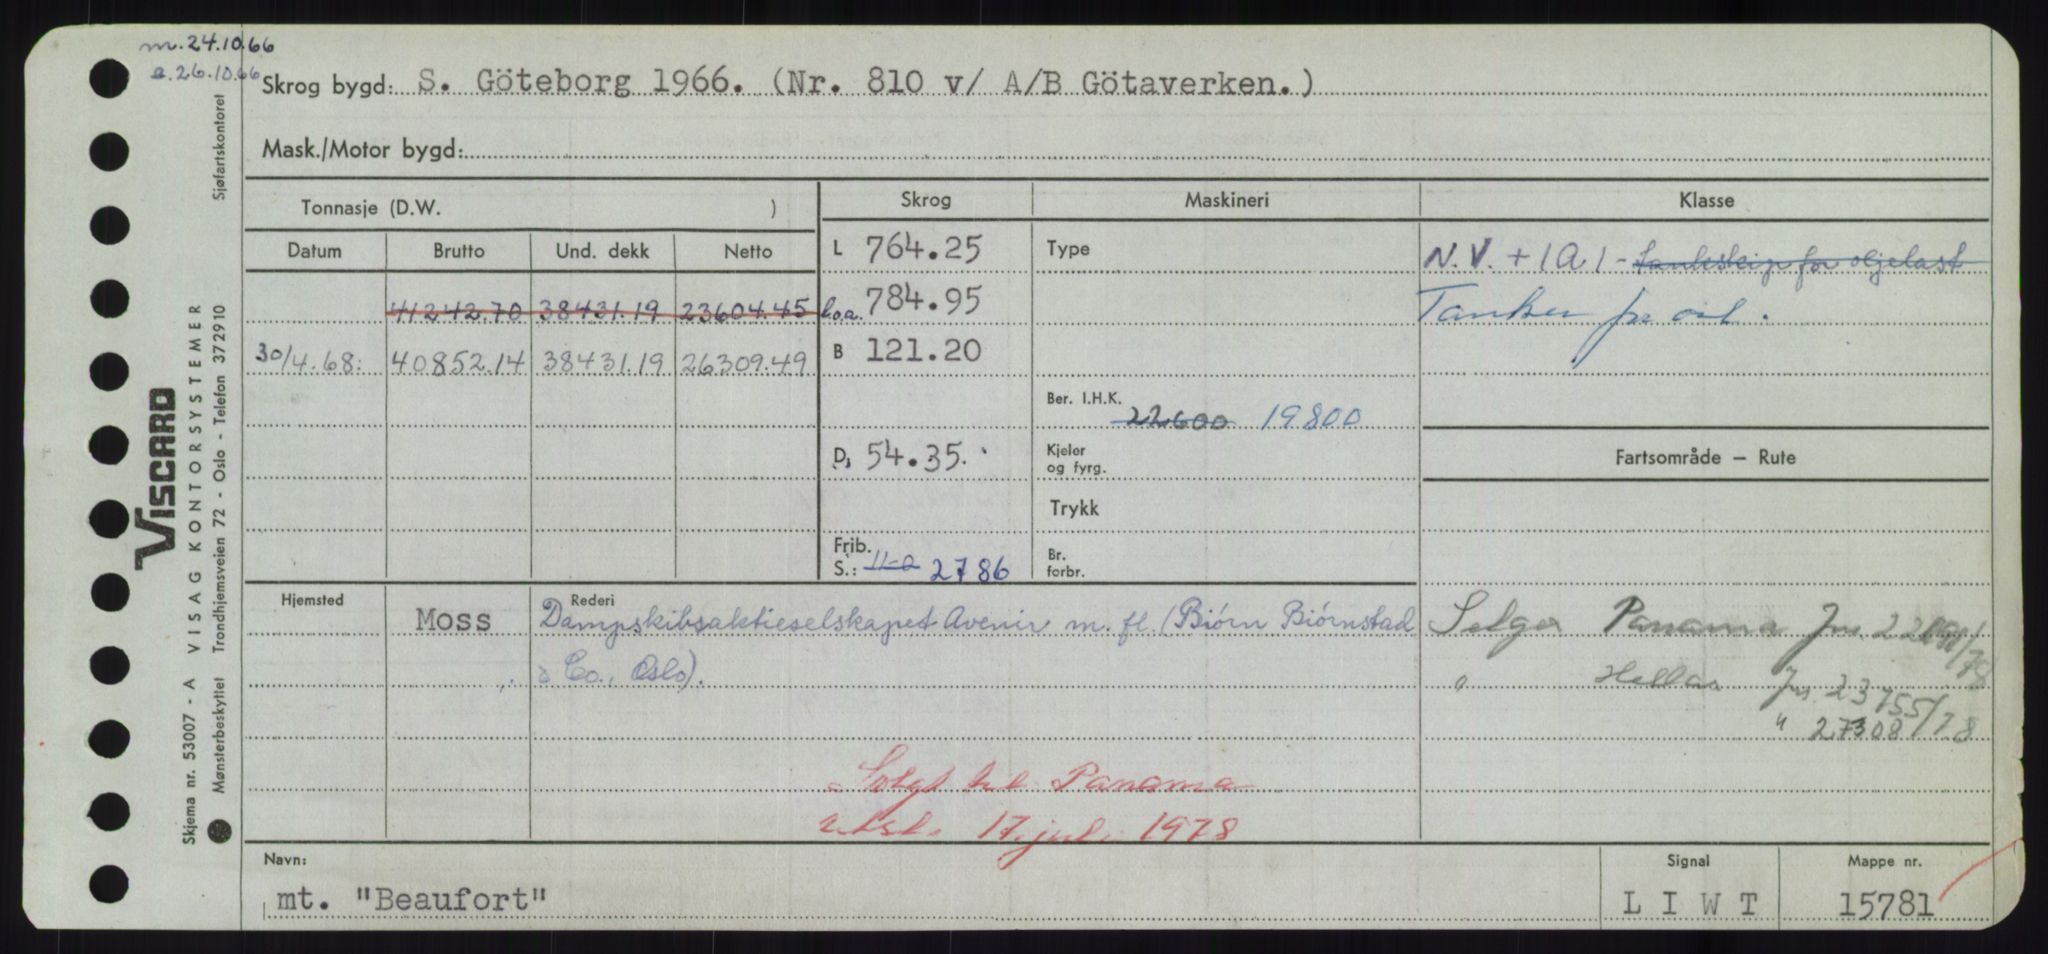 m. 24.10.66
a. 26.10.66
Skrog bygd: S. Göteborg 1966. (Nr. 810 v/ A/B Götaverken.)
Mask./Motor bygd:
Tonnasje (D.W. )
Skrog
Maskineri
Klasse
Datum
Brutto
Und. dekk
Netto
L 764.25
Type
N.V. + 1A1 - tankskip for oljelast
41242.70 38431.19 23604.45
l.o.a. 784.95
Tanker for oil.
30/4.68: 40852.14 38431.19 26309.49
B 121.20
Ber. I.H.K.
22600 19800
D, 54.35.
Kjeler
og fyrg.
Fartsområde – Rute
Trykk
Frib.
S.: 11-2 2786
Br.
forbr.
Hjemsted
Moss
Rederi
Dampskibsaktieselskapet Avenir m. fl. (Biørn Biørnstad
& Co., Oslo).
Selger Panama Jnr. /78
" Hellas Jnr. 23755/78
" 27308/78
Solgt til Panama
17. juli 1978
Navn:
mt. "Beaufort"
Signal
L I W T
Mappe nr.
15781
Sjøfartskontoret
VISCARD
VISAG KONTORSYSTEMER
Trondhjemsveien 72 - Oslo - Telefon 372910
Skjema nr. 53007 - A
Mønsterbeskyttet